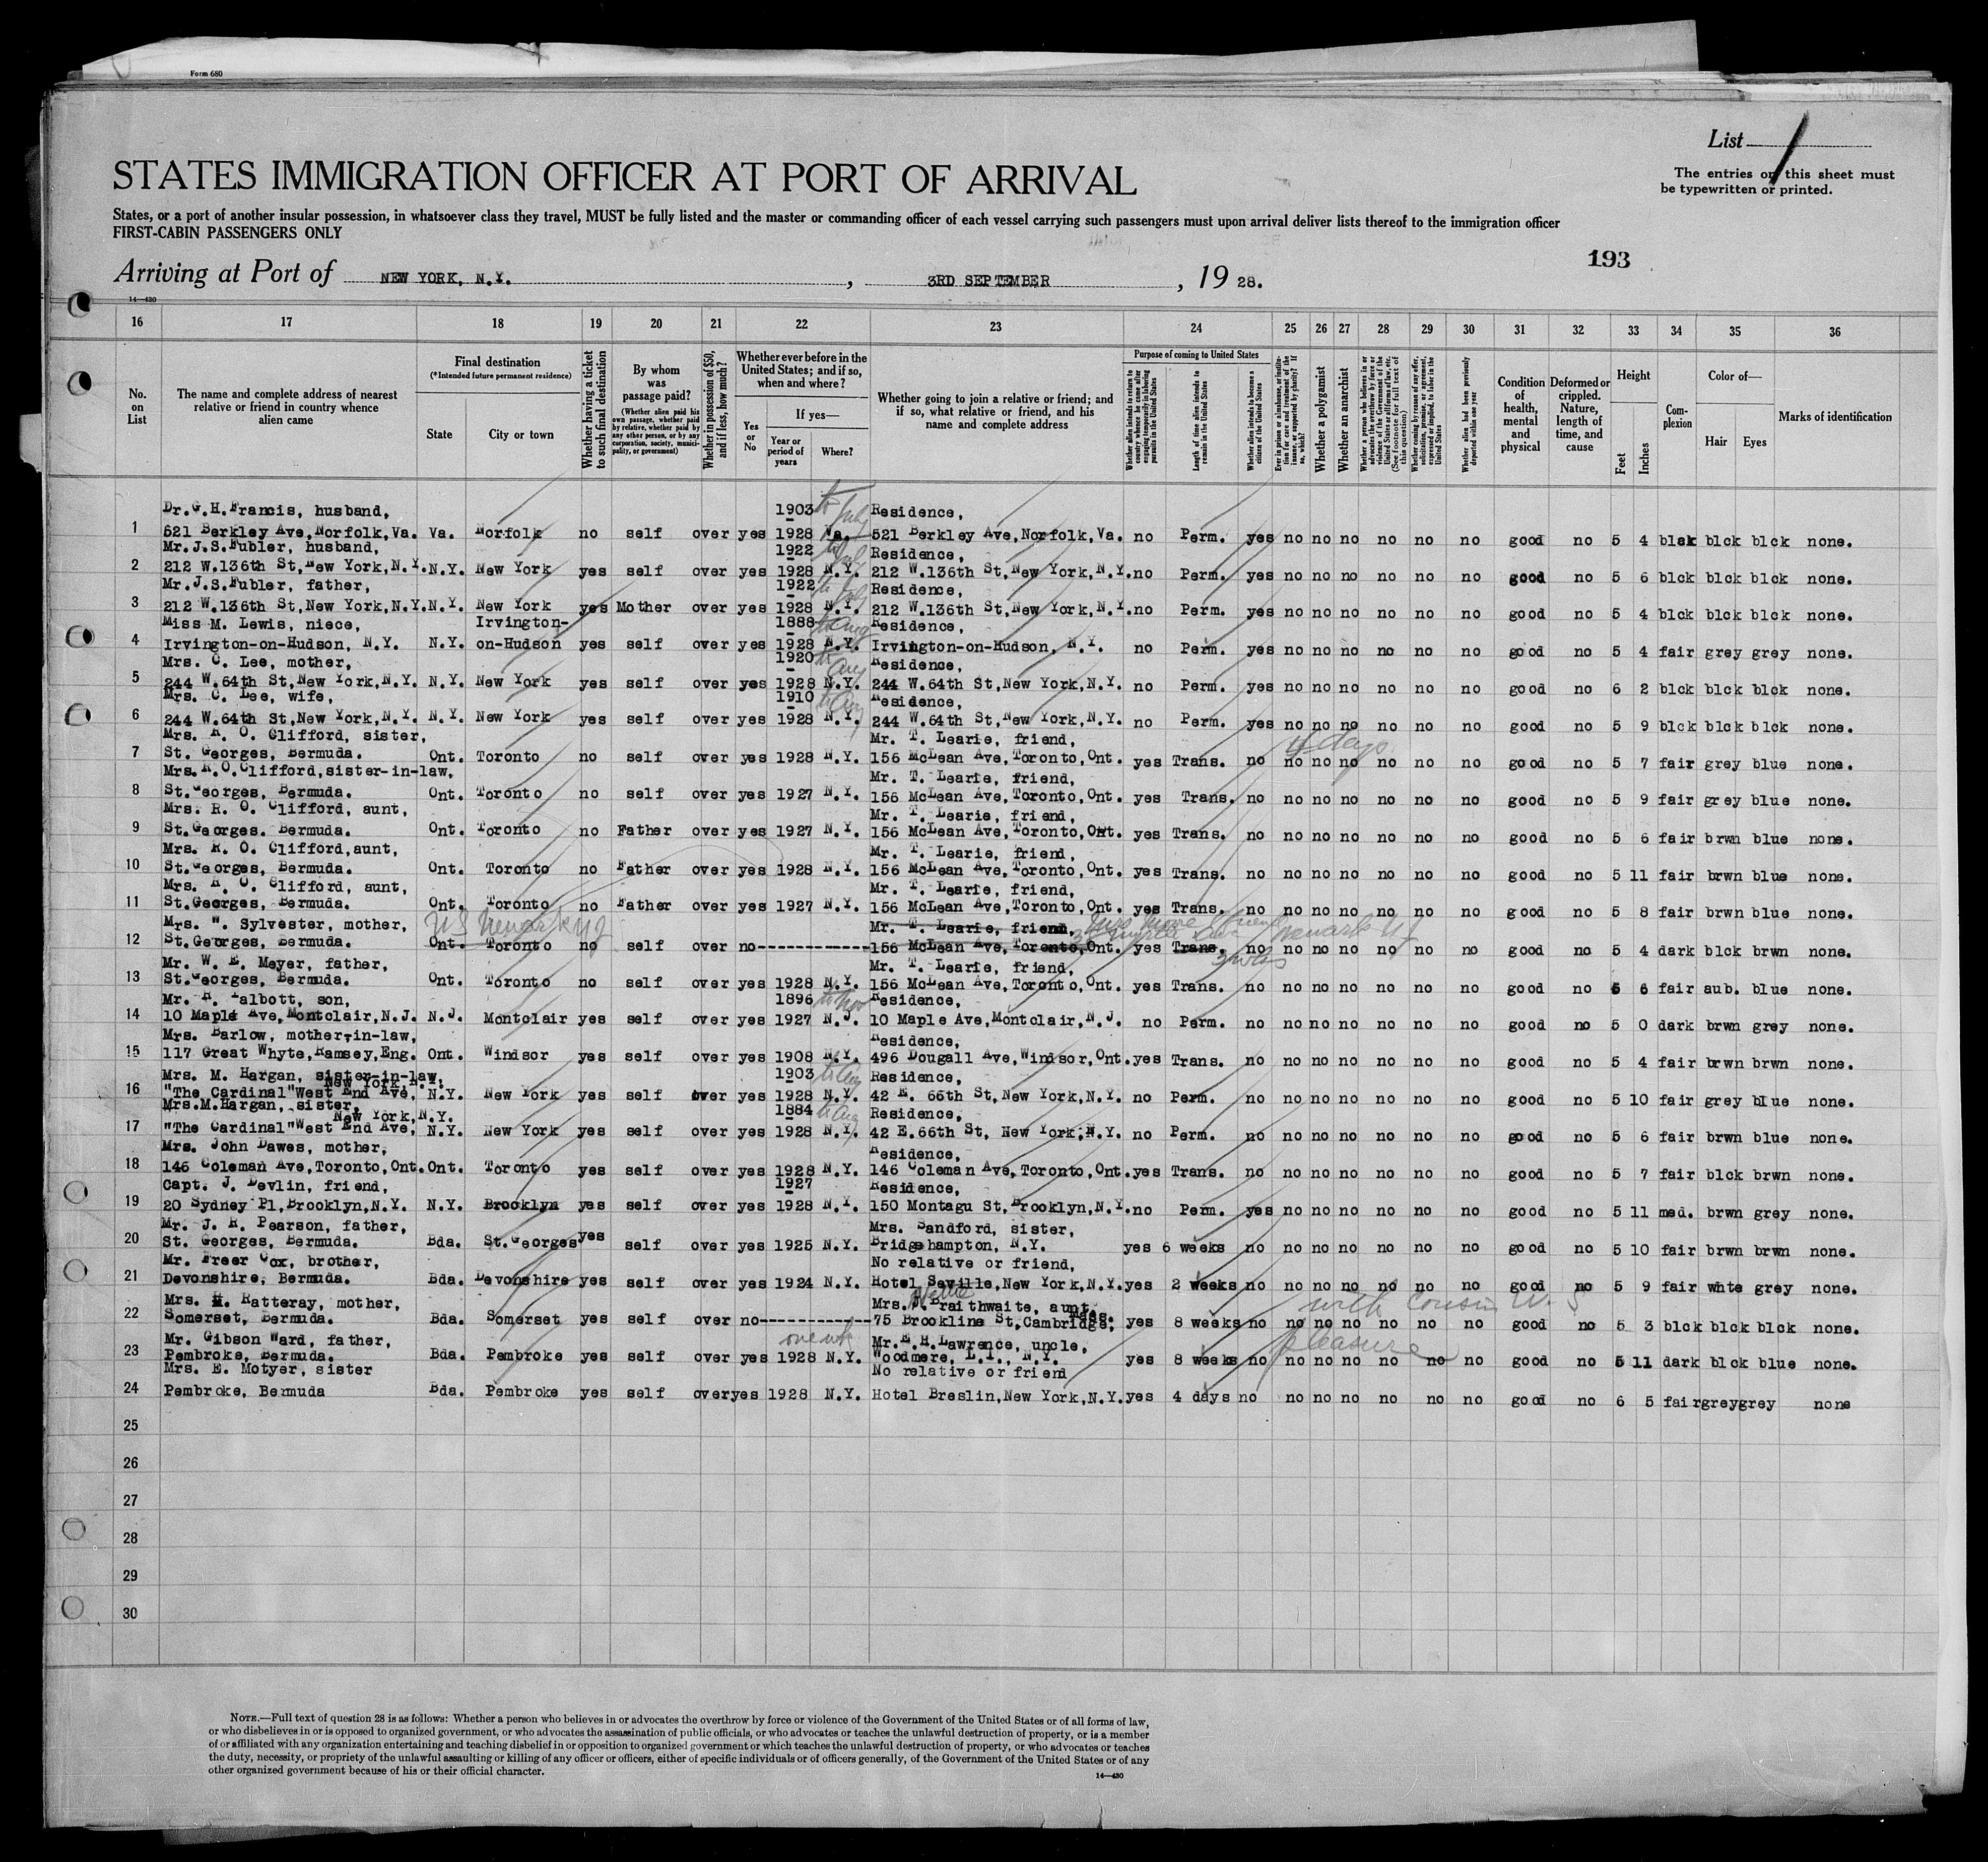 Form 680
List 1
The entries on this sheet must
be typewritten or printed.
STATES IMMIGRATION OFFICER AT PORT OF ARRIVAL
States, or a port of another insular possession, in whatsoever class they travel, MUST be fully listed and the master or commanding officer of each vessel carrying such passengers must upon arrival deliver lists thereof to the immigration officer
FIRST-CABIN PASSENGERS ONLY
193
Arriving at Port of NEW YORK, N.Y. , 3RD SEPTEMBER , 19 28.
14—430
16 17 18 19 20 21 22 23 24 25 26 27 28 29 30 31 32 33 34 35 36
No. on List
The name and complete address of nearest relative or friend in country whence alien came
Final destination
(*Intended future permanent residence)
State
City or town
Whether having a ticket to such final destination
By whom was passage paid?
(Whether alien paid his own passage, whether paid by relative, whether paid by any other person, or by any corporation, society, municipality, or government)
Whether in possession of $50, and if less, how much?
Whether ever before in the United States; and if so, when and where?
Yes or No
If yes—
Year or period of years
Where?
Whether going to join a relative or friend; and if so, what relative or friend, and his name and complete address
Purpose of coming to United States
Whether alien intends to return to country whence he came after engaging temporarily in laboring pursuits in the United States
Length of time alien intends to remain in the United States
Whether alien intends to become a citizen of the United States
Ever in prison or almshouse, or institution for care and treatment of the insane, or supported by charity? If so, which?
Whether a polygamist
Whether an anarchist
Whether a person who believes in or advocates the overthrow by force or violence of the Government of the United States or all forms of law, etc. (See footnote for full text of this question)
Whether coming by reason of any offer, solicitation, promise, or agreement, expressed or implied, to labor in the United States
Whether alien had been previously deported within one year
Condition of health, mental and physical
Deformed or crippled. Nature, length of time, and cause
Height
Feet
Inches
Complexion
Color of—
Hair
Eyes
Marks of identification
Dr.G.H.Francis, husband, 1903 to July Residence,
1 521 Berkley Ave,Norfolk,Va. Va. Norfolk no self over yes 1928 Va. 521 Berkley Ave,Norfolk,Va. no Perm. yes no no no no no no good no 5 4 blck blck blck none.
Mr.J.S.Fubler, husband, 1922 Residence,
2 212 W.136th St,New York,N.Y. N.Y. New York yes self over yes 1928 N.Y. 212 W.136th St,New York,N.Y. no Perm. yes no no no no no no good no 5 6 blck blck blck none.
Mr.J.S.Fubler, father, 1922 to July Residence,
3 212 W.136th St,New York,N.Y. N.Y. New York yes Mother over yes 1928 N.Y. 212 W.136th St,New York,N.Y. no Perm. yes no no no no no no good no 5 4 blck blck blck none.
Miss M. Lewis, niece, Irvington- 1888 to Aug Residence,
4 Irvington-on-Hudson, N.Y. N.Y. on-Hudson yes self over yes 1928 N.Y. Irvington-on-Hudson, N.Y. no Perm. yes no no no no no no good no 5 4 fair grey grey none.
Mrs. C. Lee, mother, 1920 to Aug Residence,
5 244 W.64th St,New York,N.Y. N.Y. New York yes self over yes 1928 N.Y. 244 W.64th St,New York,N.Y. no Perm. yes no no no no no no good no 6 2 blck blck blck none.
Mrs. C. Lee, wife, 1910 to Aug Residence,
6 244 W.64th St,New York,N.Y. N.Y. New York yes self over yes 1928 N.Y. 244 W.64th St,New York,N.Y. no Perm. yes no no no no no no good no 5 9 blck blck blck none.
Mrs. R. O. Clifford, sister, Mr. T. Learie, friend, 4 days
7 St. Georges, Bermuda. Ont. Toronto no self over yes 1928 N.Y. 156 McLean Ave,Toronto,Ont. yes Trans. no no no no no no no good no 5 7 fair grey blue none.
Mrs.R.O.Clifford,sister-in-law, Mr. T. Learie, friend,
8 St.Georges, Bermuda. Ont. Toronto no self over yes 1927 N.Y. 156 McLean Ave,Toronto,Ont. yes Trans. no no no no no no no good no 5 9 fair grey blue none.
Mrs. R. O. Clifford, aunt, Mr. T. Learie, friend,
9 St.Georges. Bermuda. Ont. Toronto no Father over yes 1927 N.Y. 156 McLean Ave,Toronto,Ont. yes Trans. no no no no no no no good no 5 6 fair brwn blue none.
Mrs. R. O. Clifford,aunt, Mr. T. Learie, friend,
10 St.Georges, Bermuda. Ont. Toronto no Father over yes 1928 N.Y. 156 McLean Ave,Toronto,Ont. yes Trans. no no no no no no no good no 5 11 fair brwn blue none.
Mrs. R. O. Clifford, aunt, Mr. T. Learie, friend,
11 St.Georges, Bermuda. Ont. Toronto no Father over yes 1927 N.Y. 156 McLean Ave,Toronto,Ont. yes Trans. no no no no no no no good no 5 8 fair brwn blue none.
Mrs. W. Sylvester, mother, US Newark NJ Mr. T. Learie, friend, friend Newark NJ
12 St.Georges, Bermuda. Ont. Toronto no self over no------------ 156 McLean Ave, Toronto,Ont. yes Trans. no no no no no no no good no 5 4 dark blck brwn none.
Mr. W. E. Meyer, father, Mr. T. Learie, friend,
13 St.Georges, Bermuda. Ont. Toronto no self over yes 1928 N.Y. 156 McLean Ave,Toronto,Ont. yes Trans. no no no no no no no good no 5 6 fair aub. blue none.
Mr. R. Talbott, son, 1896 to Nov Residence,
14 10 Maple Ave,Montclair,N.J. N.J. Montclair yes self over yes 1927 N.J. 10 Maple Ave,Montclair,N.J. no Perm. no no no no no no no good no 5 0 dark brwn grey none.
Mrs. Barlow, mother-in-law, Residence,
15 117 Great Whyte,Ramsey,Eng. Ont. Windsor yes self over yes 1908 N.Y. 496 Dougall Ave,Windsor,Ont. yes Trans. no no no no no no no good no 5 4 fair brwn brwn none.
Mrs. M. Hargan, sister-in-law, 1903 to Aug Residence,
New York,N.Y.
16 "The Cardinal"West End Ave, N.Y. New York yes self over yes 1928 N.Y. 42 E. 66th St,New York,N.Y. no Perm. no no no no no no no good no 5 10 fair grey blue none.
Mrs.M.Hargan, sister, 1884 to Aug Residence,
New York,N.Y.
17 "The Cardinal"West End Ave, N.Y. New York yes self over yes 1928 N.Y. 42 E.66th St, New York,N.Y. no Perm. no no no no no no no good no 5 6 fair brwn blue none.
Mrs. John Dawes, mother, Residence,
18 146 Coleman Ave,Toronto,Ont. Ont. Toronto yes self over yes 1928 N.Y. 146 Coleman Ave,Toronto,Ont. yes Trans. no no no no no no no good no 5 7 fair blck brwn none.
Capt. J. Devlin, friend, 1927 Residence,
19 20 Sydney Pl,Brooklyn,N.Y. N.Y. Brooklyn yes self over yes 1928 N.Y. 150 Montagu St,Brooklyn,N.Y. no Perm. yes no no no no no no good no 5 11 med. brwn grey none.
Mr. J. R. Pearson, father, Mrs. Sandford, sister,
20 St. Georges, Bermuda. Bda. St.Georges yes self over yes 1925 N.Y. Bridgehampton, N.Y. yes 6 weeks no no no no no no no good no 5 10 fair brwn brwn none.
Mr. Freer Cox, brother, No relative or friend,
21 Devonshire, Bermuda. Bda. Devonshire yes self over yes 1924 N.Y. Hotel Seville,New York,N.Y. yes 2 weeks no no no no no no no good no 5 9 fair whte grey none.
Mrs. H. Ratteray, mother, Mrs. Braithwaite, aunt, with cousin
22 Somerset, Bermuda. Bda. Somerset yes self over no------------ 75 Brookline St,Cambridge, Mass. yes 8 weeks no no no no no no no good no 5 3 blck blck blck none.
Mr. Gibson Ward, father, one wk Mr.E.H.Lawrence, uncle, pleasure
23 Pembroke, Bermuda. Bda. Pembroke yes self over yes 1928 N.Y. Woodmere, L.I., N.Y. yes 8 weeks no no no no no no no good no 5 11 dark blck blue none.
Mrs. E. Motyer, sister No relative or friend
24 Pembroke, Bermuda Bda. Pembroke yes self over yes 1928 N.Y. Hotel Breslin,New York,N.Y. yes 4 days no no no no no no no good no 6 5 fair grey grey none
25
26
27
28
29
30
NOTE.—Full text of question 28 is as follows: Whether a person who believes in or advocates the overthrow by force or violence of the Government of the United States or of all forms of law,
or who disbelieves in or is opposed to organized government, or who advocates the assassination of public officials, or who advocates or teaches the unlawful destruction of property, or is a member
of or affiliated with any organization entertaining and teaching disbelief in or opposition to organized government or which teaches the unlawful destruction of property, or who advocates or teaches
the duty, necessity, or propriety of the unlawful assaulting or killing of any officer or officers, either of specific individuals or of officers generally, of the Government of the United States or of any
other organized government because of his or their official character.
14—430